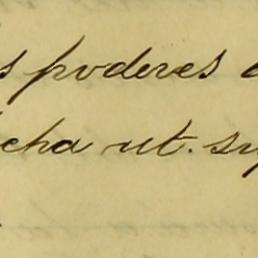 s poderes
cha ut. su